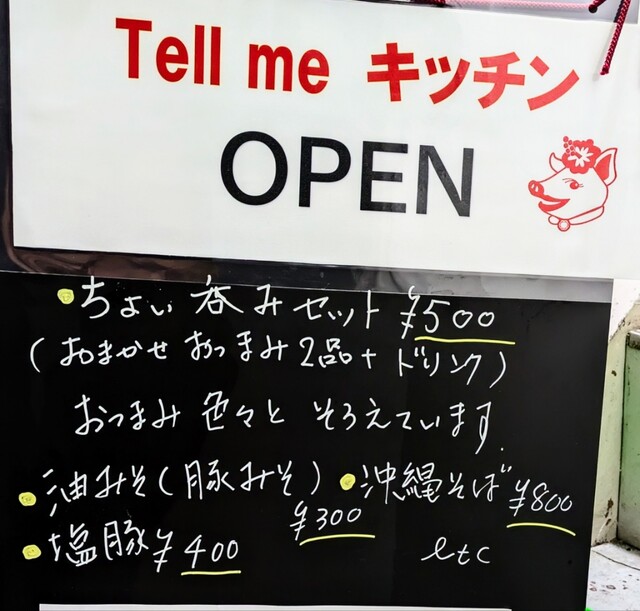 Tell me キッチン
OPEN
・ちょい呑みセット ¥500
(おまかせおつまみ2品+ドリンク)
おつまみ色々とそろえています.
・油みそ(豚みそ) ・沖縄そば ¥800
¥300
・塩豚 ¥400 etc